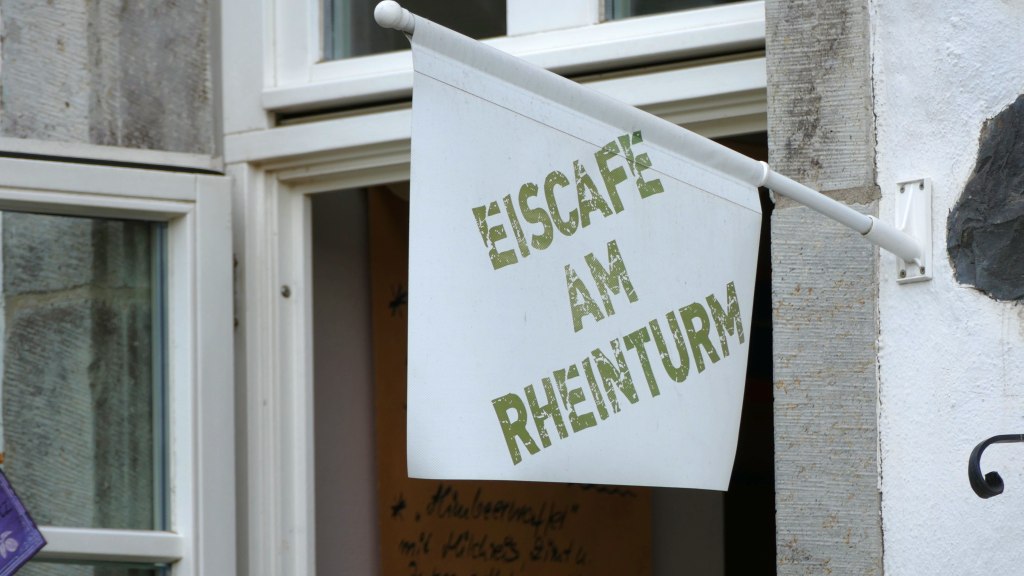 EISCAFE
AM
RHEINTURM
"Himbeerbecher"
mit